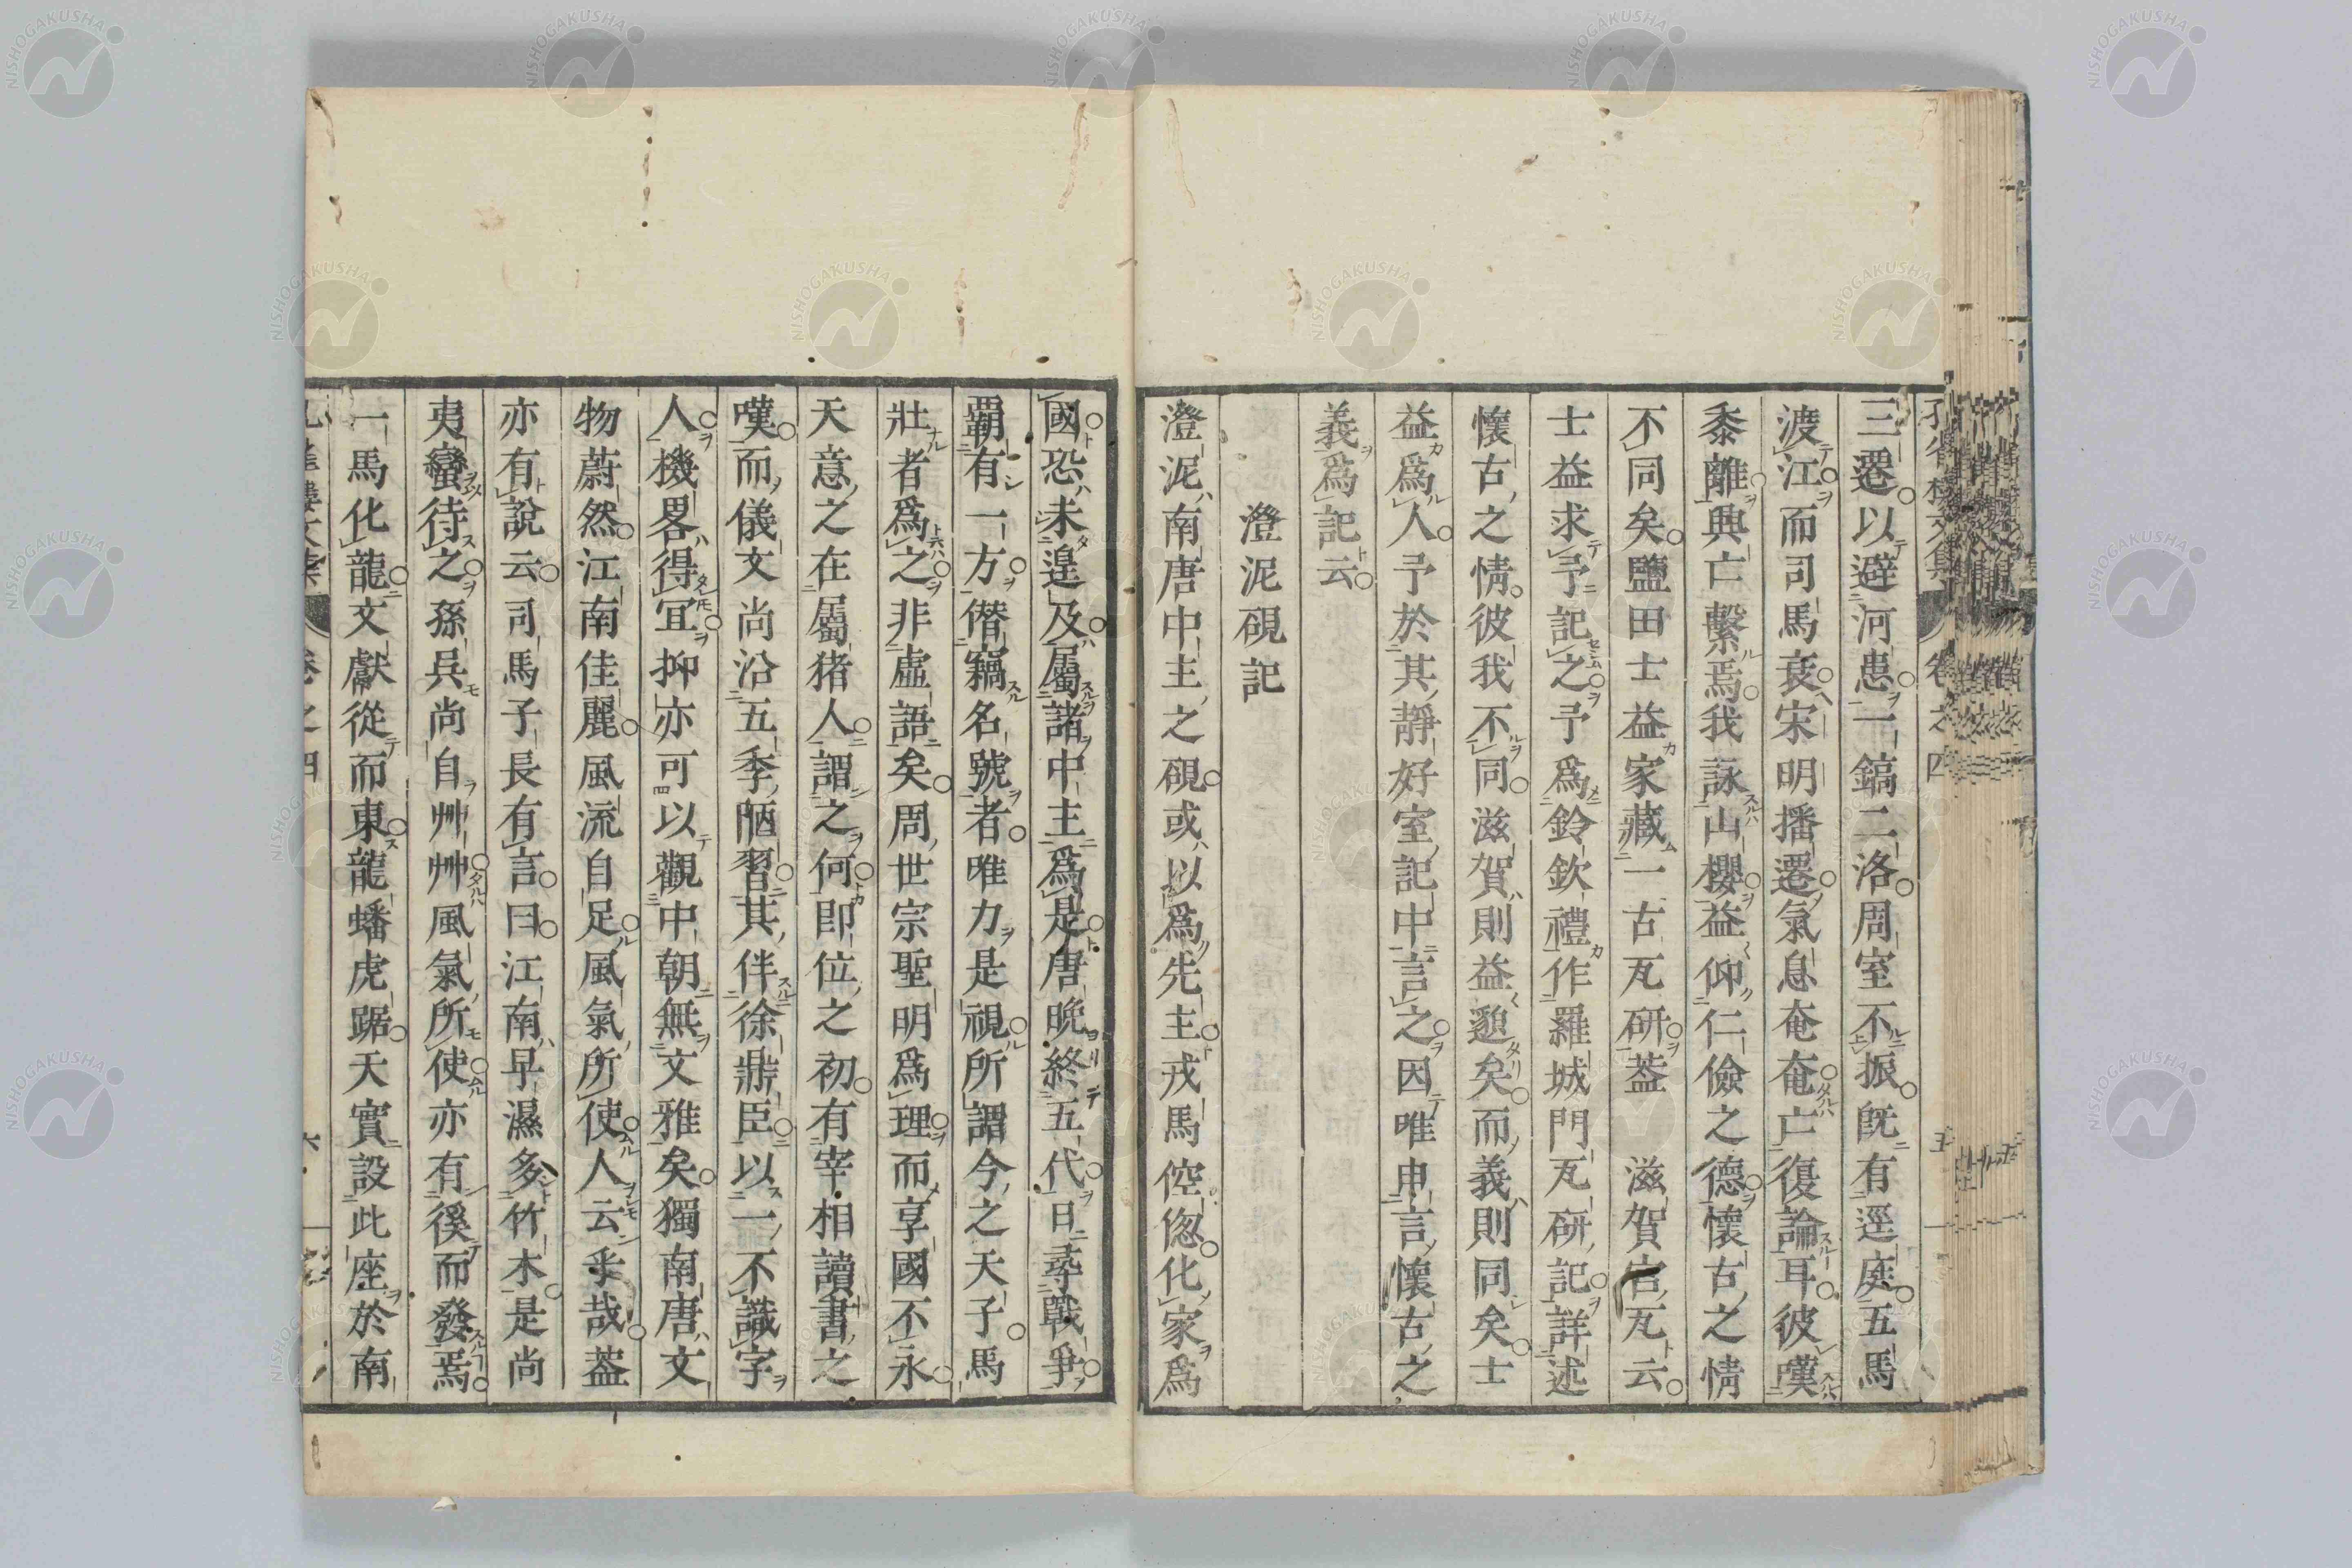 三遷以避河患一鎬二洛周室不振旣有逕庭五馬
渡江而司馬衰宋明播遷氣息奄奄亡復論耳彼嘆
黍離興亡繫焉我詠山櫻益仰仁儉之德懷古之情
不同矣鹽田士益家藏一古瓦研葢 滋賀宮瓦云
士益求予記之予爲鈴欽禮作羅城門瓦研記詳述
懷古之情彼我不同滋賀則益邈矣而義則同矣士
益爲人予於其靜好室記中言之因唯申言懷古之
義爲記云
澄泥硯記
澄泥南唐中主之硯或以爲先主戎馬倥偬化家爲
國恐未遑及屬諸中主爲是唐晚終五代日尋戰爭
覇有一方僭竊名號者唯力是視所謂今之天子馬
壯者爲之非虛語矣周世宗聖明爲理而享國不永
天意之在屬猪人謂之何卽位之初有宰相讀書之
嘆而儀文尚沿五季陋習其伴徐鼎臣以一不識字
人機畧得宜抑亦可以觀中朝無文雅矣獨南唐文
物蔚然江南佳麗風流自足風氣所使人云乎哉葢
亦有說云司馬子長有言曰江南早濕多竹木是尚
夷蠻待之孫吳尚自艸艸風氣所使亦有徯而發焉
一馬化龍文獻從而東龍蟠虎踞天實設此座於南
卷之四
NISHOGAKUSHA